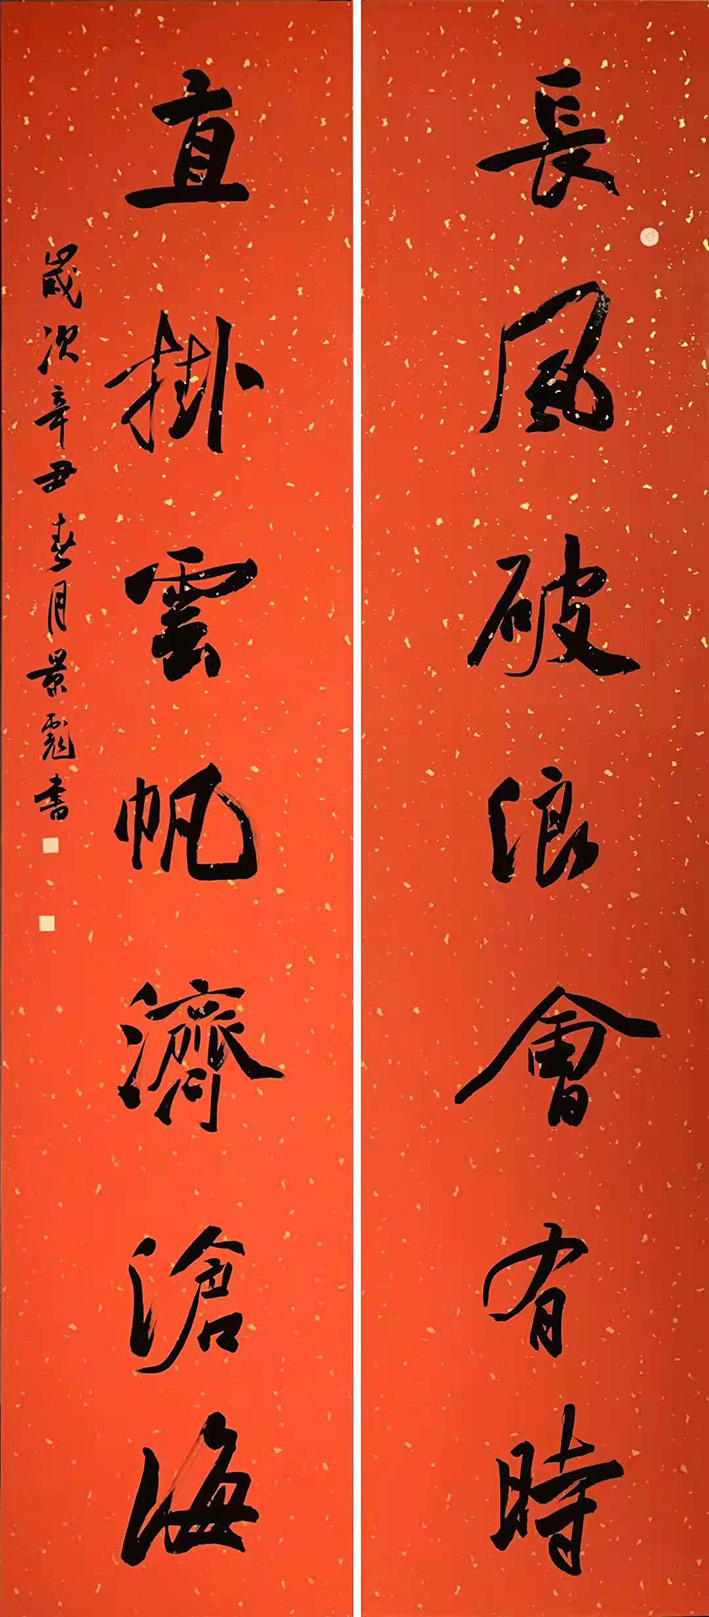 長風破浪會有時
直掛雲帆濟滄海
歲次辛丑春月景彪書